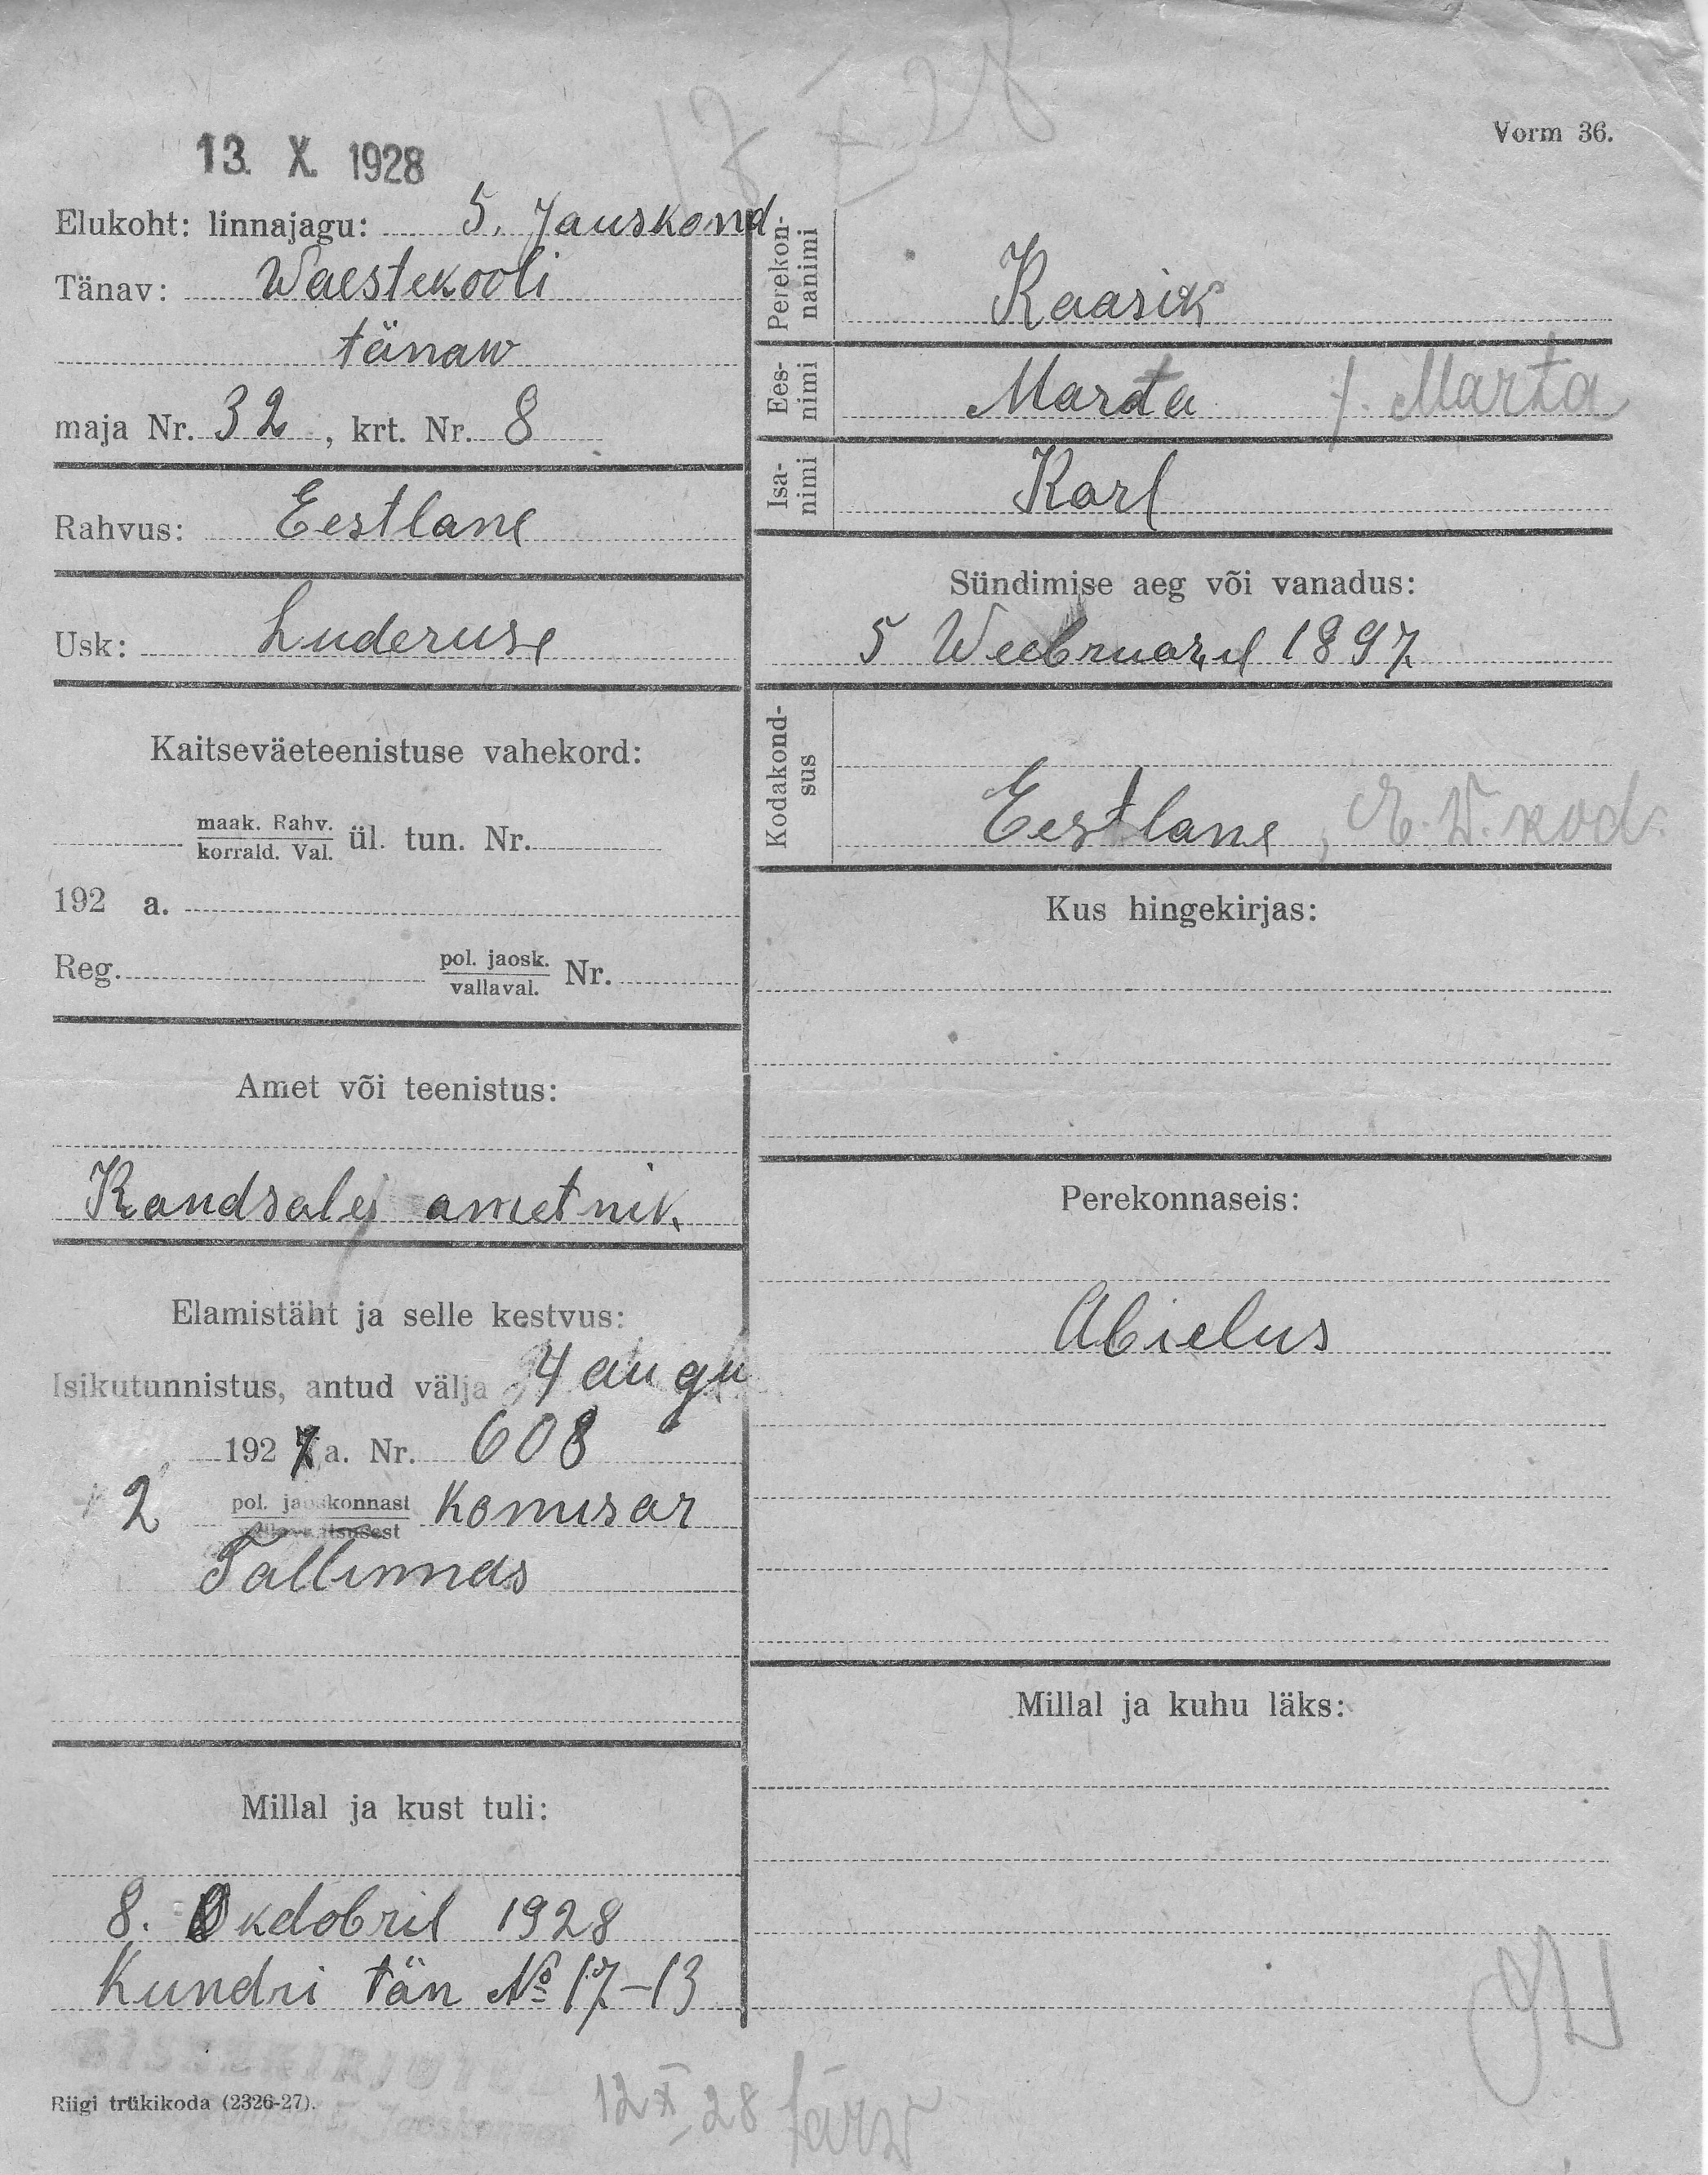 17 X 28
Vorm 36.
13. X. 1928
Elukoht: linnajagu: 5. Jauskond
Tänav: Waestekooli
tänaw
maja Nr. 32, krt. Nr. 8
Rahvus: Eestlane
Usk: Luderuse
Kaitseväeteenistuse vahekord:
maak. Rahv.
korrald. Val. ül. tun. Nr.
192 a.
Reg. pol. jaosk.
vallaval. Nr.
Amet või teenistus:
Kandsalei ametnik
Elamistäht ja selle kestvus:
Isikutunnistus, antud välja 4 augu
1927 a. Nr. 608
2 pol. jaoskonnast Komisar
Tallinnas
Millal ja kust tuli:
8. Okdobril 1928
Kundri tän № 17-13
Riigi trükikoda (2326-27).
12 X 28
Perekon-
nanimi
Kaasik
Ees-
nimi
Marta Marta
Isa-
nimi
Karl
Sündimise aeg või vanadus:
5 Weebruaril 1897
Kodakond-
sus
Eestlane, E.W. kod.
Kus hingekirjas:
Perekonnaseis:
Abielus
Millal ja kuhu läks: